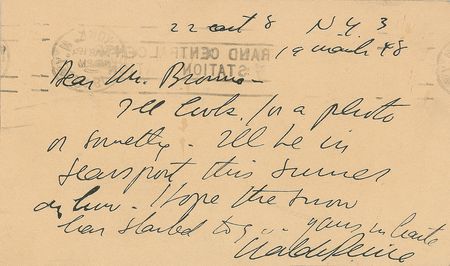 22 east 8 N.Y. 3
19 march 48
Dear Mr. Browne -
I'll look for a photo
or something - I'll be in
Searsport this summer
anhow - Hope the snow
has started to go .. yours in haste
Waldo Peirce
GRAND CENTRAL
STATION